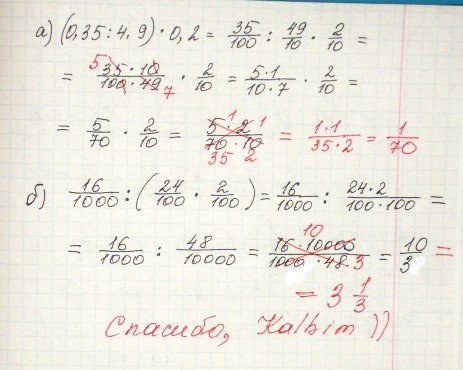 а) (0,35 : 4,9) · 0,2 = 35/100 : 49/10 · 2/10 =
= 35·10/100·49 · 2/10 = 5·1/10·7 · 2/10 = 5 7
= 5/70 · 2/10 = 5·2/70·10 = 1·1/35·2 = 1/70 1 1 35 2
б) 16/1000 : (24/100 · 2/100) = 16/1000 : 24·2/100·100 =
= 16/1000 : 48/10000 = 16·10000/1000·48 = 10/3 = 10 3
= 3 1/3
Спасибо, Kalbim ))